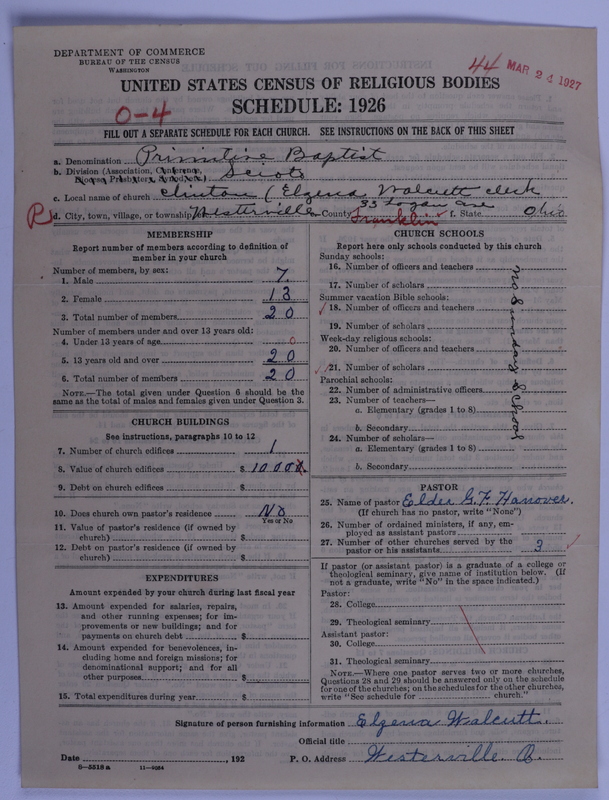 DEPARTMENT OF COMMERCE
BUREAU OF THE CENSUS
WASHINGTON
44 MAR 24 1927
UNITED STATES CENSUS OF RELIGIOUS BODIES
0-4
SCHEDULE: 1926
FILL OUT A SEPARATE SCHEDULE FOR EACH CHURCH. SEE INSTRUCTIONS ON THE BACK OF THIS SHEET
a. Denomination Primitive Baptist
b. Division (Association, Conference, Scioto
Diocese, Presbytery, Synod, etc.)
c. Local name of church Clinton (Elzena Walcutt clerk
33 Logan Ave
d. City, town, village, or township Westerville County Franklin f. State Ohio
MEMBERSHIP
Report number of members according to definition of
member in your church
Number of members, by sex:
1. Male 7
2. Female 13
3. Total number of members 20
Number of members under and over 13 years old:
4. Under 13 years of age 0
5. 13 years old and over 20
6. Total number of members 20
NOTE.—The total given under Question 6 should be the
same as the total of males and females given under Question 3.
CHURCH BUILDINGS
See instructions, paragraphs 10 to 12
7. Number of church edifices 1
8. Value of church edifices $ 1000
9. Debt on church edifices $
10. Does church own pastor's residence No
Yes or No
11. Value of pastor's residence (if owned by
church) $
12. Debt on pastor's residence (if owned by
church) $
EXPENDITURES
Amount expended by your church during last fiscal year
13. Amount expended for salaries, repairs,
and other running expenses; for im-
provements or new buildings; and for
payments on church debt $
14. Amount expended for benevolences, in-
cluding home and foreign missions; for
denominational support; and for all
other purposes $
15. Total expenditures during year $
CHURCH SCHOOLS
Report here only schools conducted by this church
Sunday schools:
16. Number of officers and teachers
17. Number of scholars
Summer vacation Bible schools:
18. Number of officers and teachers
19. Number of scholars
Week-day religious schools:
20. Number of officers and teachers
21. Number of scholars
Parochial schools:
22. Number of administrative officers
23. Number of teachers—
a. Elementary (grades 1 to 8)
b. Secondary
24. Number of scholars—
a. Elementary (grades 1 to 8)
b. Secondary
no Sunday School
PASTOR
25. Name of pastor Elder G. F. Hanover.
(If church has no pastor, write "None")
26. Number of ordained ministers, if any, em-
ployed as assistant pastors
27. Number of other churches served by the
pastor or his assistants 3
If pastor (or assistant pastor) is a graduate of a college or
theological seminary, give name of institution below. (If
not a graduate, write "No" in the space indicated.)
Pastor:
28. College
29. Theological seminary
Assistant pastor:
30. College
31. Theological seminary
NOTE.—Where one pastor serves two or more churches,
Questions 28 and 29 should be answered only on the schedule
for one of the churches; on the schedules for the other churches,
write "See schedule for church."
Signature of person furnishing information Elzena Walcutt.
Official title
Date , 192 P. O. Address Westerville O.
8-5518 a 11-9064